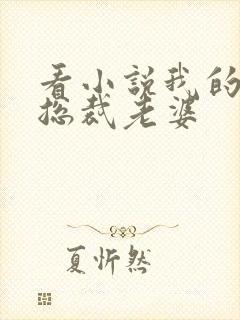 看小说我的
总裁老婆
夏忻然